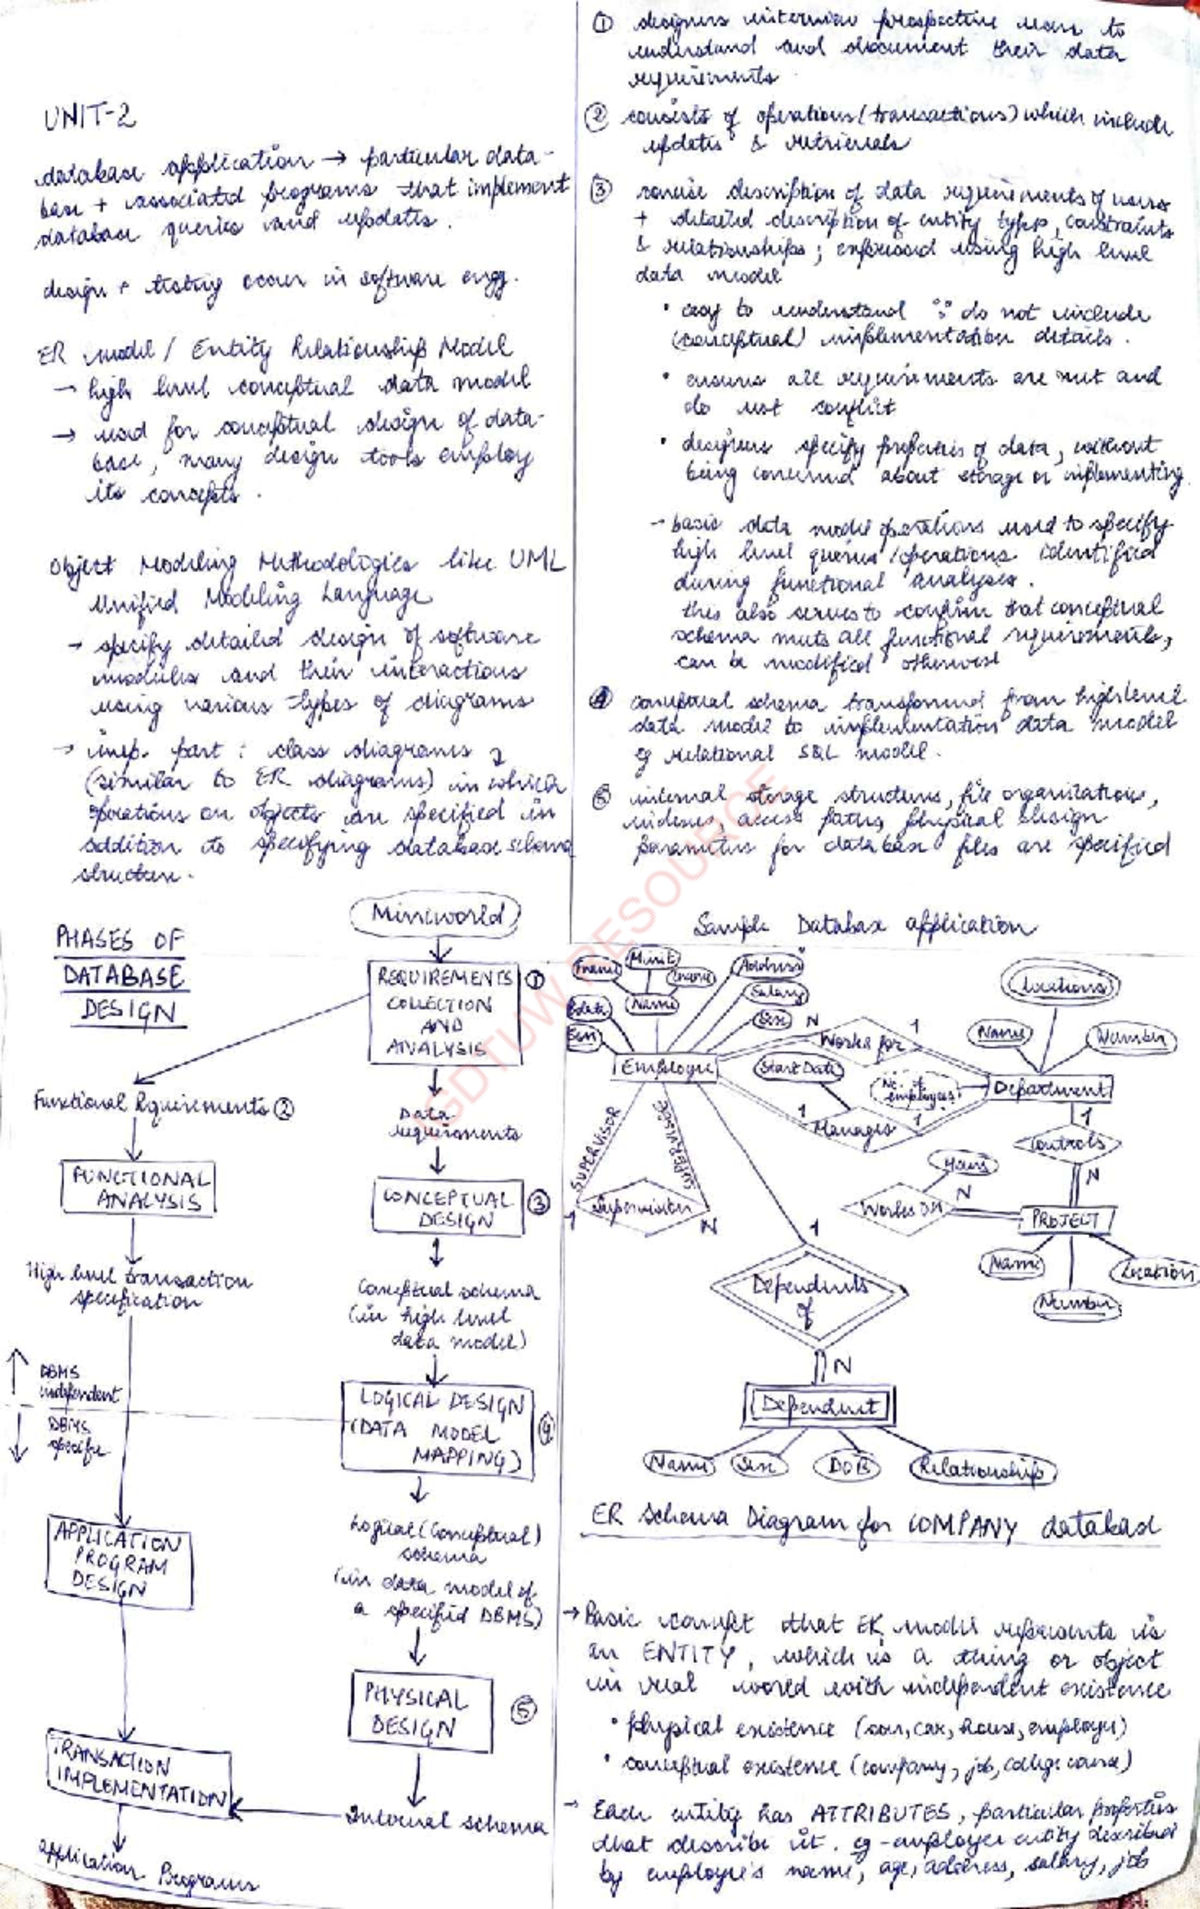 UNIT-2
database application → particular data-
base + associated programs that implement
database queries and updates.
design + testing occur in software engg.
ER model / Entity Relationship Model
→ high level conceptual data model
→ used for conceptual design of data-
base, many design tools employ
its concepts.
Object Modeling Methodologies like UML
Unified Modeling Language
→ specify detailed design of software
modules and their interactions
using various types of diagrams
→ imp. part : class diagrams
(similar to ER diagrams) in which
operations on objects are specified in
addition to specifying database schema
structure.
PHASES OF
DATABASE
DESIGN
Miniworld
REQUIREMENTS
COLLECTION
AND
ANALYSIS
①
Functional Requirements ②
Data
requirements
FUNCTIONAL
ANALYSIS
CONCEPTUAL
DESIGN
③
High level transaction
specification
Conceptual schema
(in high level
data model)
DBMS
independent
DBMS
specific
LOGICAL DESIGN
(DATA MODEL
MAPPING)
④
APPLICATION
PROGRAM
DESIGN
Logical (Conceptual)
schema
(in data model of
a specified DBMS)
PHYSICAL
DESIGN
⑤
TRANSACTION
IMPLEMENTATION
Internal schema
Application Programs
① designers interview prospective users to
understand and document their data
requirements
② consists of operations (transactions) which include
updates & retrievals
③ concise description of data requirements of users
+ detailed description of entity types, constraints
& relationships; expressed using high level
data model
• easy to understand ∵ do not include
(conceptual) implementation details.
• ensures all requirements are met and
do not conflict
• designers specify properties of data, without
being concerned about storage or implementing
→ basic data model operations used to specify
high level queries / operations identified
during functional analyses.
this also serves to confirm that conceptual
schema meets all functional requirements,
can be modified otherwise
④ conceptual schema transformed from high level
data model to implementation data model
eg relational SQL model.
⑤ internal storage structures, file organisations,
indexes, access paths, physical design
parameters for database files are specified
Sample Database application
Fname
Minit
Lname
Name
Address
Salary
Sex
Bdate
Ssn
Employee
N
Works for
1
Start Date
No. of
employees
1
Manages
1
Locations
Name
Number
Department
1
Controls
N
Hours
Works on
N
PROJECT
Name
Number
Location
SUPERVISOR
SUPERVISEE
Supervision
1
N
1
Dependents
of
N
Dependent
Name
Sex
DOB
Relationship
ER Schema Diagram for COMPANY database
→ Basic concept that ER model represents is
an ENTITY, which is a thing or object
in real world with independent existence
• physical existence (son, car, house, employee)
• conceptual existence (company, job, college course)
→ Each entity has ATTRIBUTES, particular properties
that describe it. eg - employee entity described
by employee's name, age, address, salary, job
IGDTUW RESOURCE